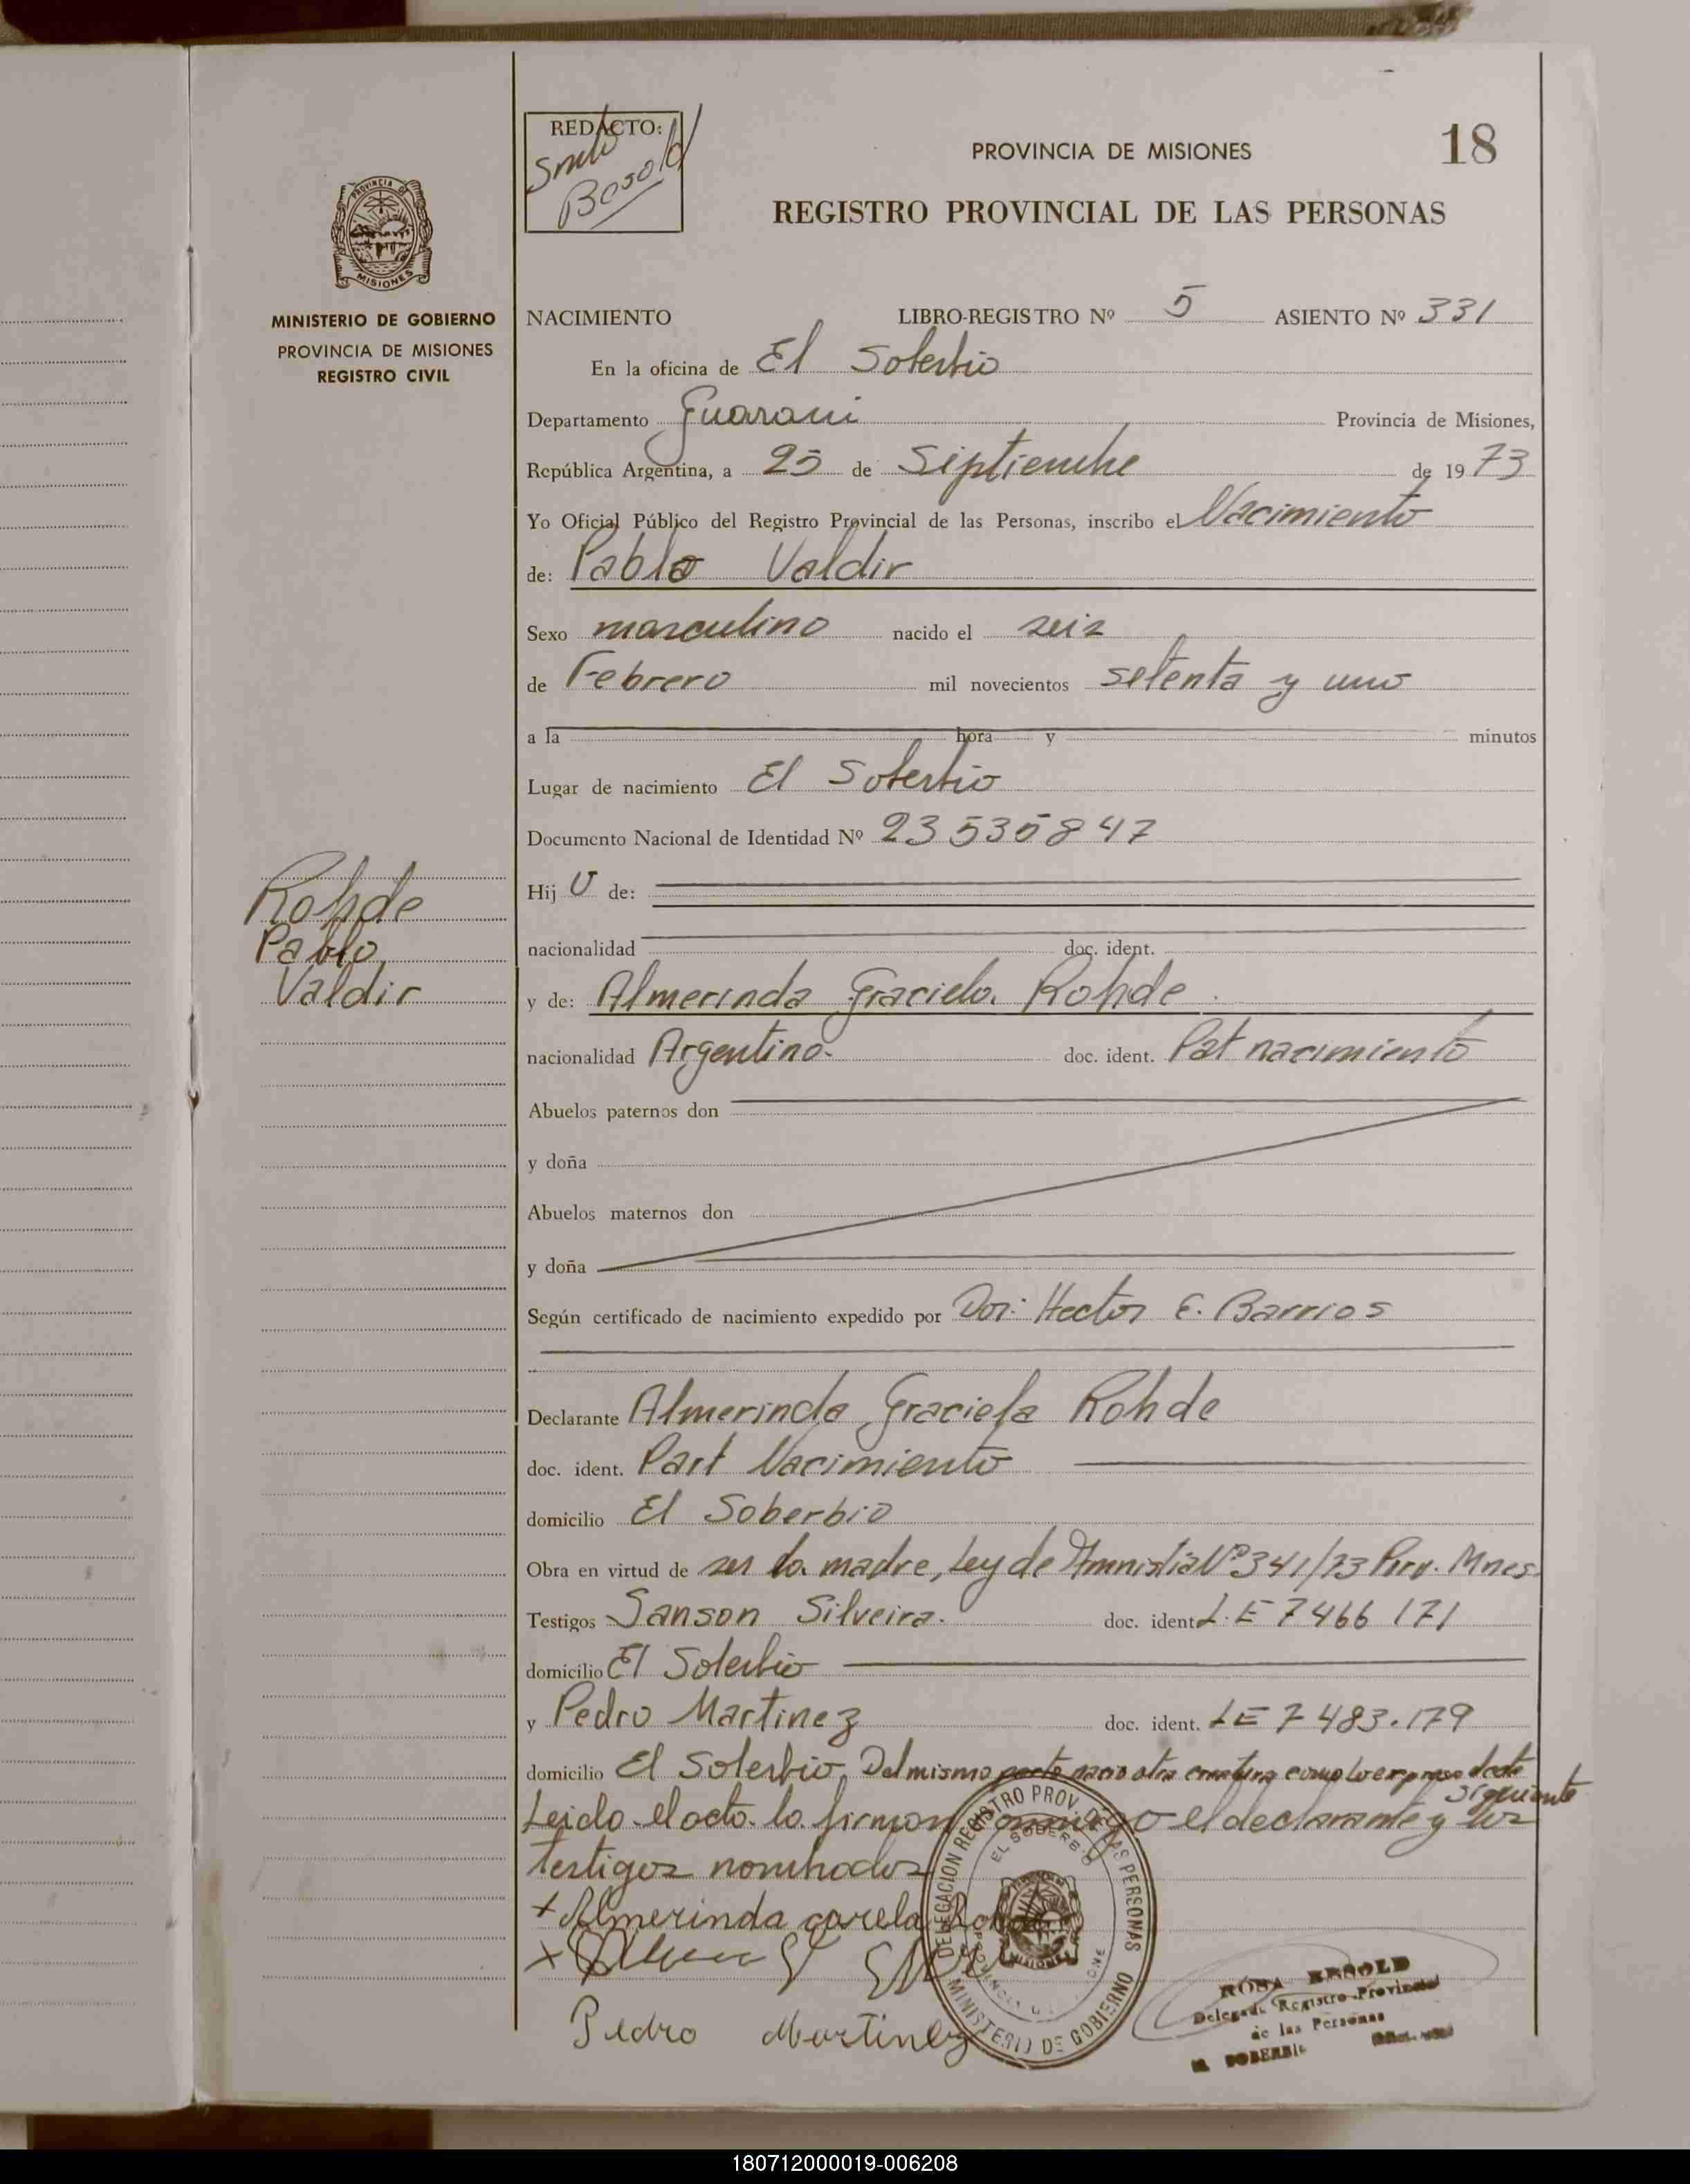 REDACTO:
18
PROVINCIA DE MISIONES
REGISTRO PROVINCIAL DE LAS PERSONAS
PROVINCIA DE
MISIONES
MINISTERIO DE GOBIERNO
PROVINCIA DE MISIONES
REGISTRO CIVIL
NACIMIENTO LIBRO-REGISTRO Nº 5 ASIENTO Nº 331
En la oficina de El Soberbio
Departamento Guarani Provincia de Misiones,
República Argentina, a 25 de Septiembre de 1973
Yo Oficial Público del Registro Provincial de las Personas, inscribo el Nacimiento
de: Pablo Valdir
Sexo masculino nacido el seis
de Febrero mil novecientos setenta y uno
a la hora y minutos
Lugar de nacimiento El Soberbio
Documento Nacional de Identidad Nº 23535847
Hij o de:
nacionalidad doc. ident.
Rohde
Pablo
Valdir
y de: Almerinda Graciela Rohde
nacionalidad Argentina doc. ident. Pat nacimiento
Abuelos paternos don
y doña
Abuelos maternos don
y doña
Según certificado de nacimiento expedido por Dor: Hector E. Barrios
Declarante Almerinda Graciela Rohde
doc. ident. Part Nacimiento
domicilio El Soberbio
Obra en virtud de ser la madre, Ley de Amnistia Nº 341/73 Prov. Mnes
Testigos Sanson Silveira doc. ident L.E 7466171
domicilio El Soberbio
y Pedro Martinez doc. ident. LE 7483.179
domicilio El Soberbio. Del mismo parto nacio otra criatura como lo expresa acta
siguiente
Leido el acta la firman conmigo el declarante y los
testigos nombrados
+ Almerinda Rohde
Pedro Martinez
DELEGACION REGISTRO PROV. DE LAS PERSONAS
EL SOBERBIO
MINISTERIO DE GOBIERNO
ROSA
Delegada Registro Provincial
de las Personas
EL SOBERBIO
180712000019-006208